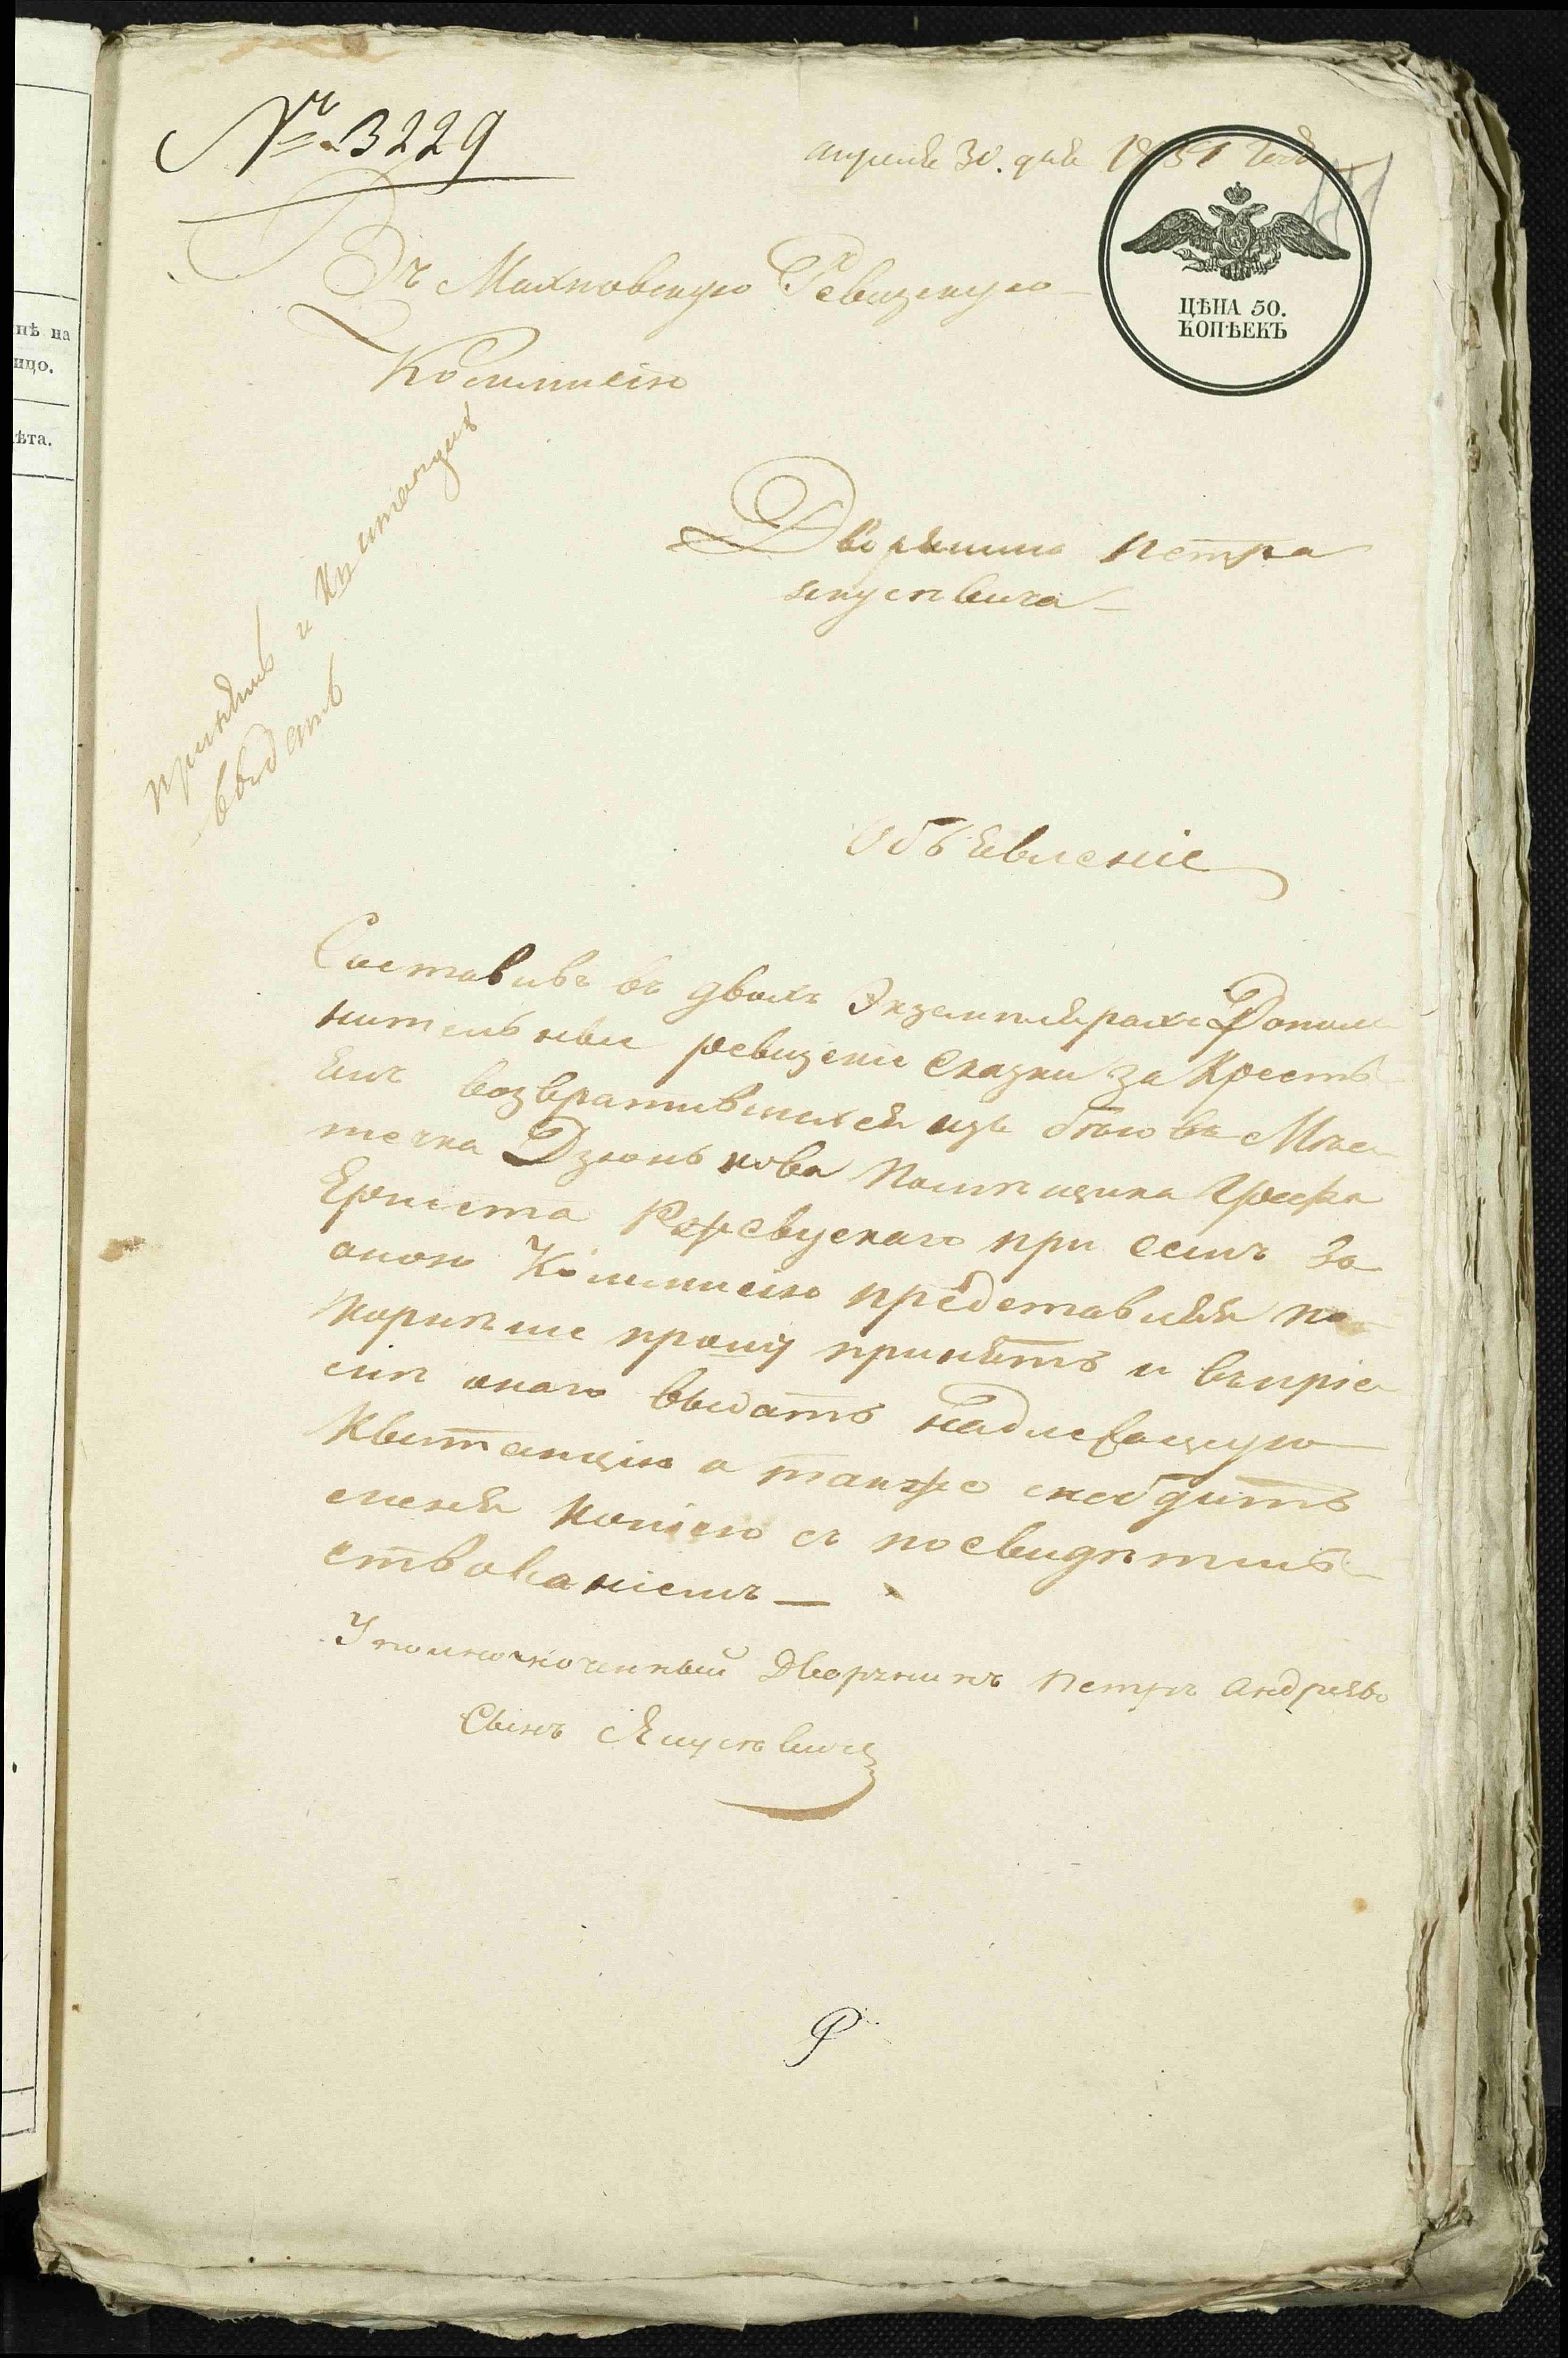 № 3229
апреля 30. дня 1851 года
ЦѢНА 50.
КОПѢЕКЪ
Въ Махновскую Ревизскую
Коммисію
принять и квитанцію
выдать
Дворянина Петра
Янусевича
Объявленіе
Составивъ въ двохъ Экземплярахъ Допол
нительные ревизскіе сказки за Кресть
янъ возвратившихся изъ бѣговъ Мѣс
течка Дзюнькова Помѣщика Графа
Ернеста Ржевускаго при семъ во
оною Коммисію представляя по
корнѣше прошу принять и въ пріе
мѣ онаго выдать надлежащую
Квитанцію а также снабдить
меня копіею съ посвидѣтель
ствованіемъ
Уполномоченный Дворянинъ Петръ Андреевъ
Сынъ Янусевичъ
нѣ на
ицо.
ѣта.